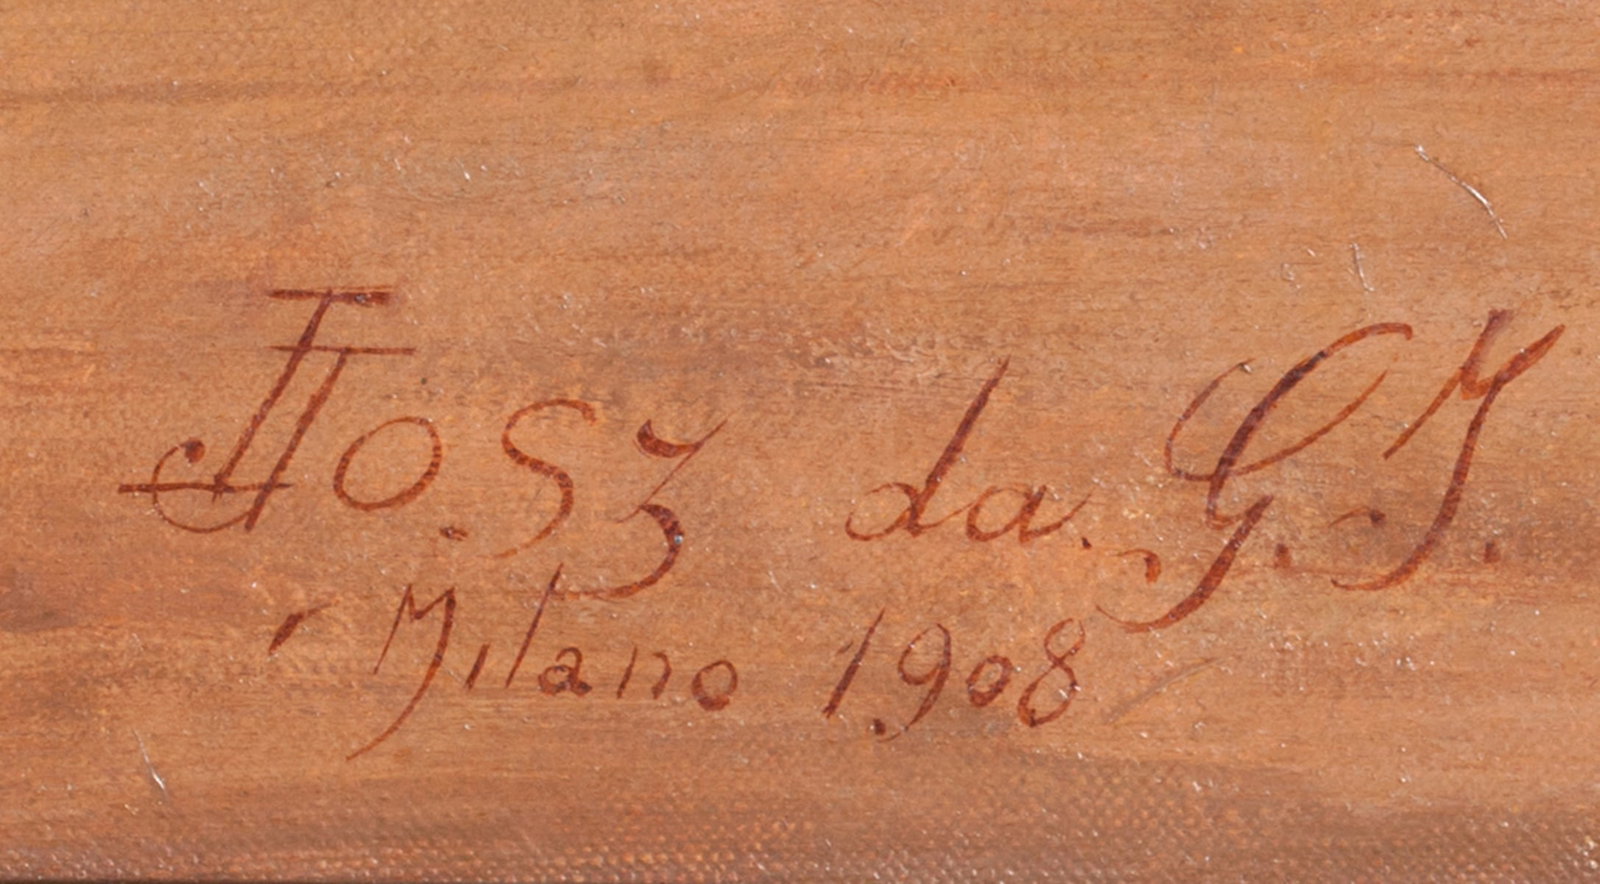 Fro. Sz da. G. M.
Milano 1908